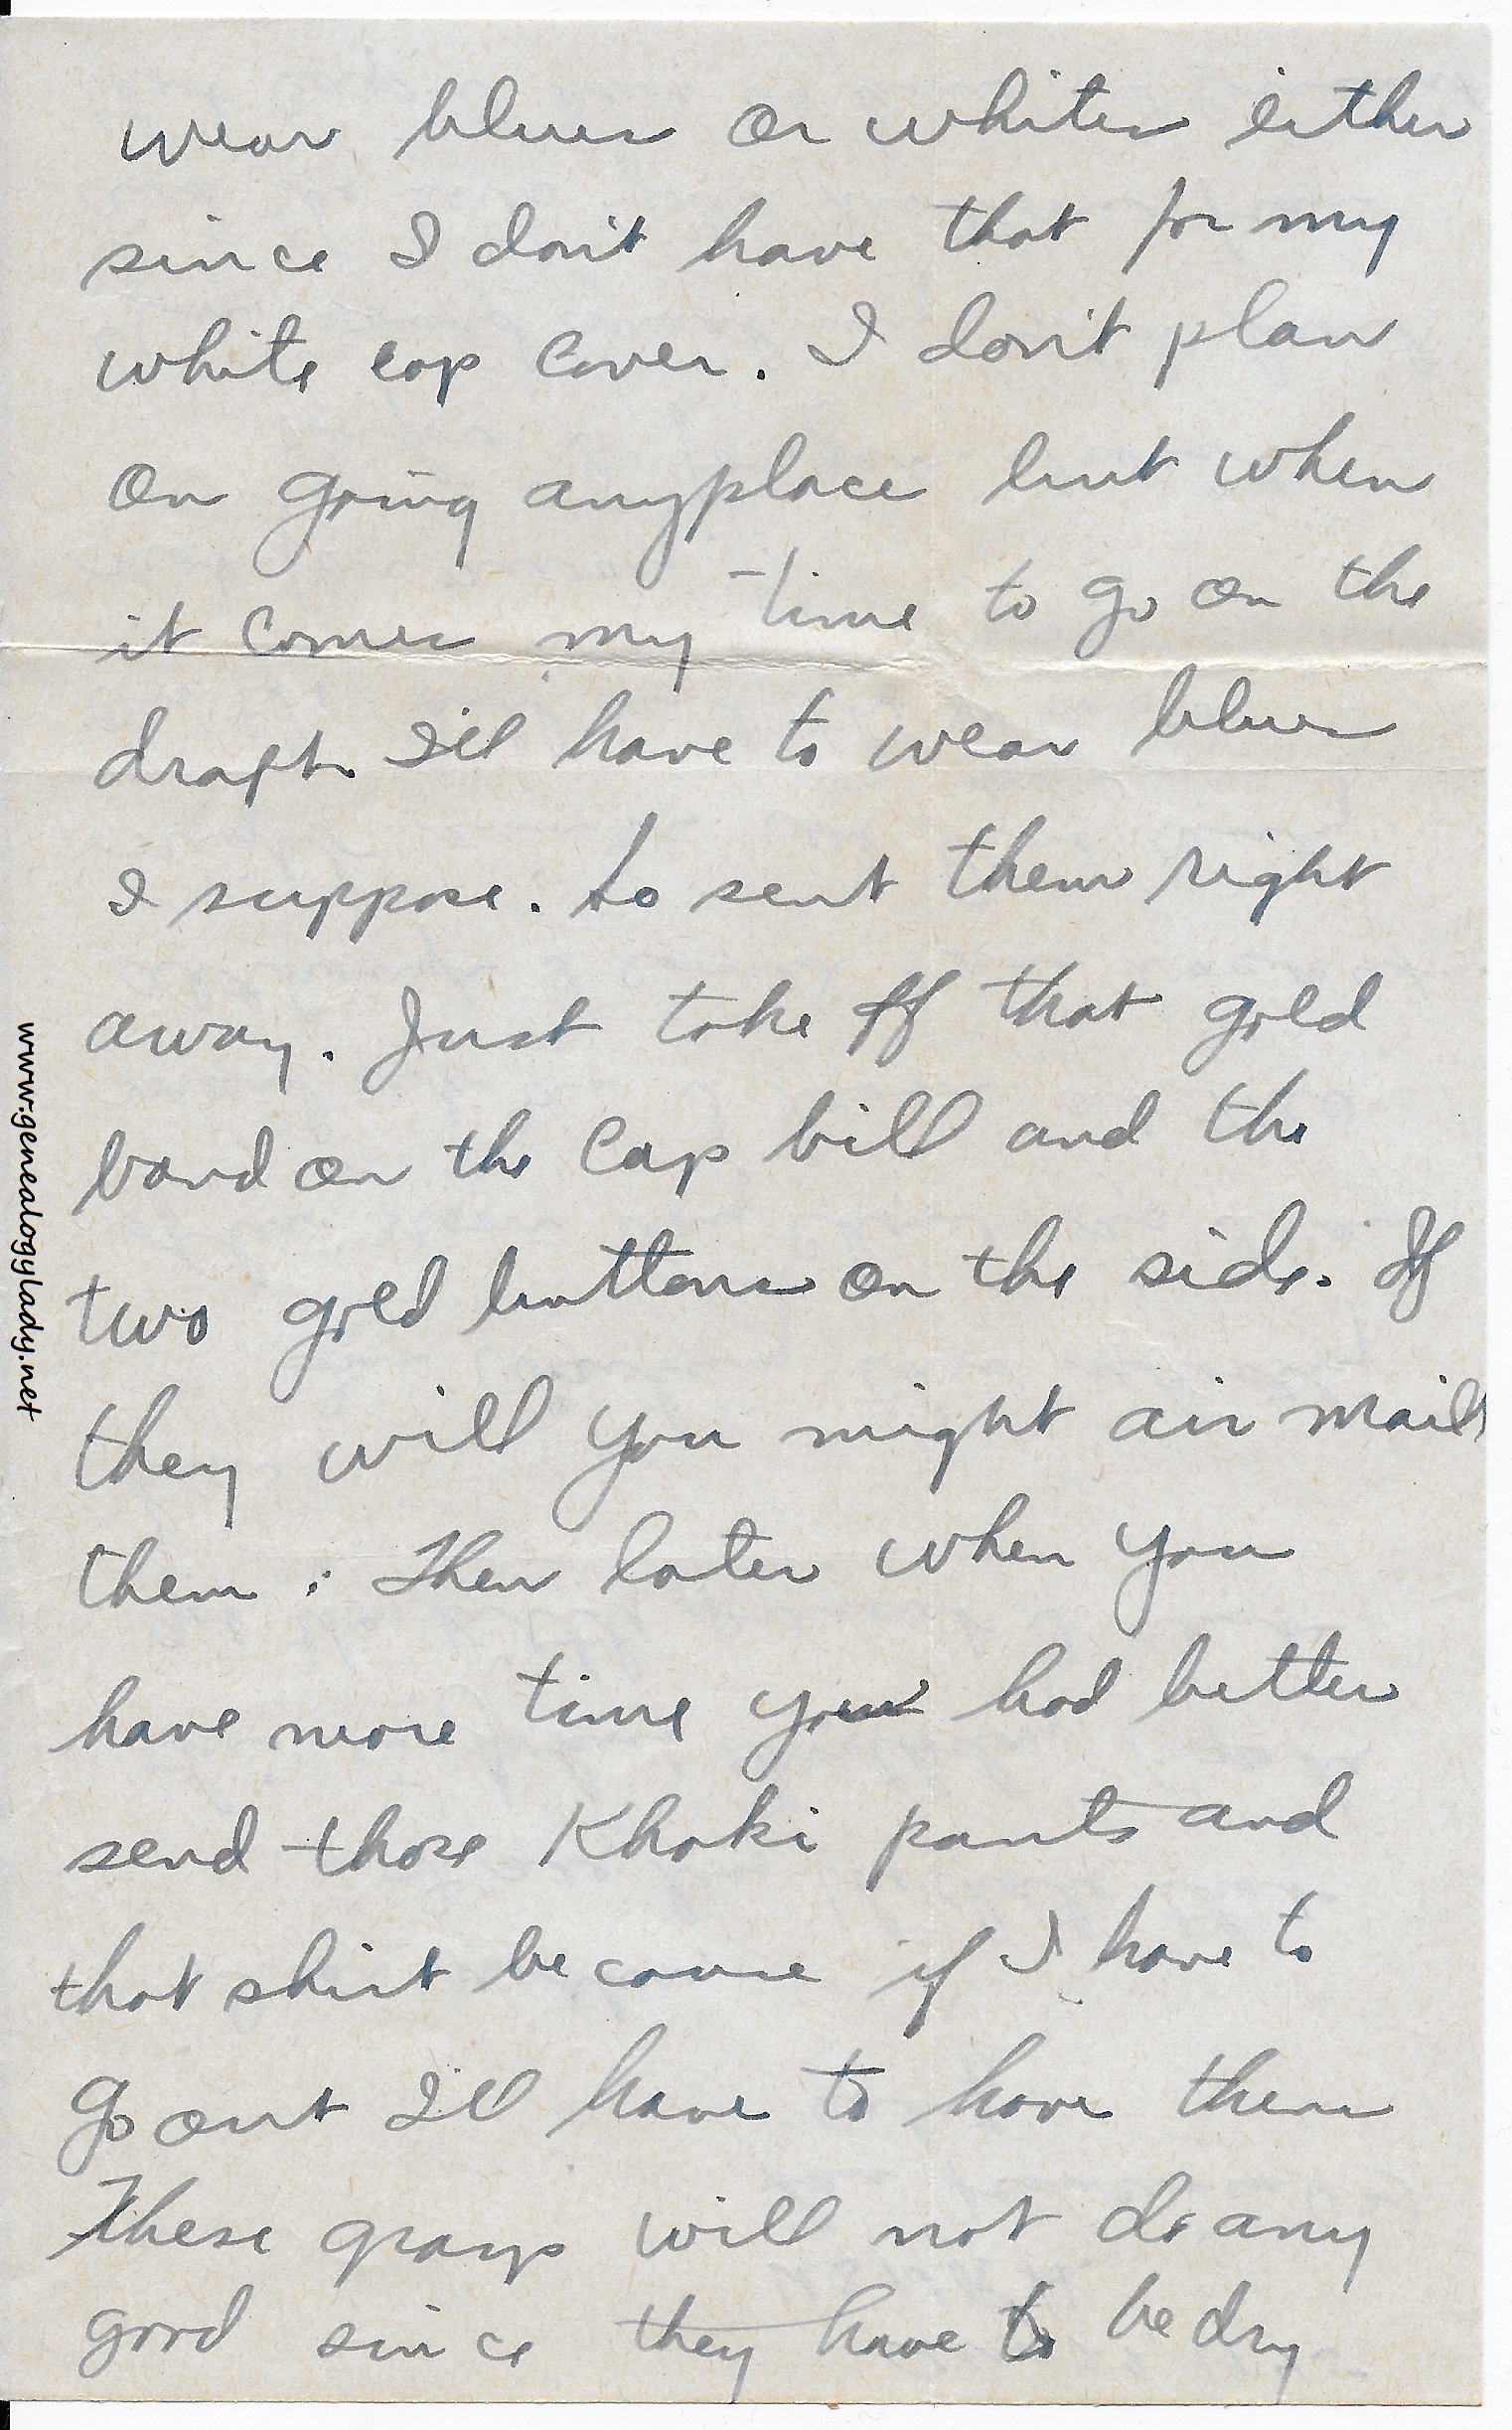 wear blues or whites either
since I don't have that for my
white cap cover. I don't plan
on going anyplace but when
it comes my time to go on the
draft I'll have to wear blues
I suppose. So sent them right
away. Just take off that gold
band on the cap bill and the
two gold buttons on the side. If
they will you might air mail
them. Then later when you
have more time you had better
send those Khaki pants and
that shirt because if I have to
go out I'll have to have them
These grays will not do any
good since they have to be dry
www.genealogylady.net